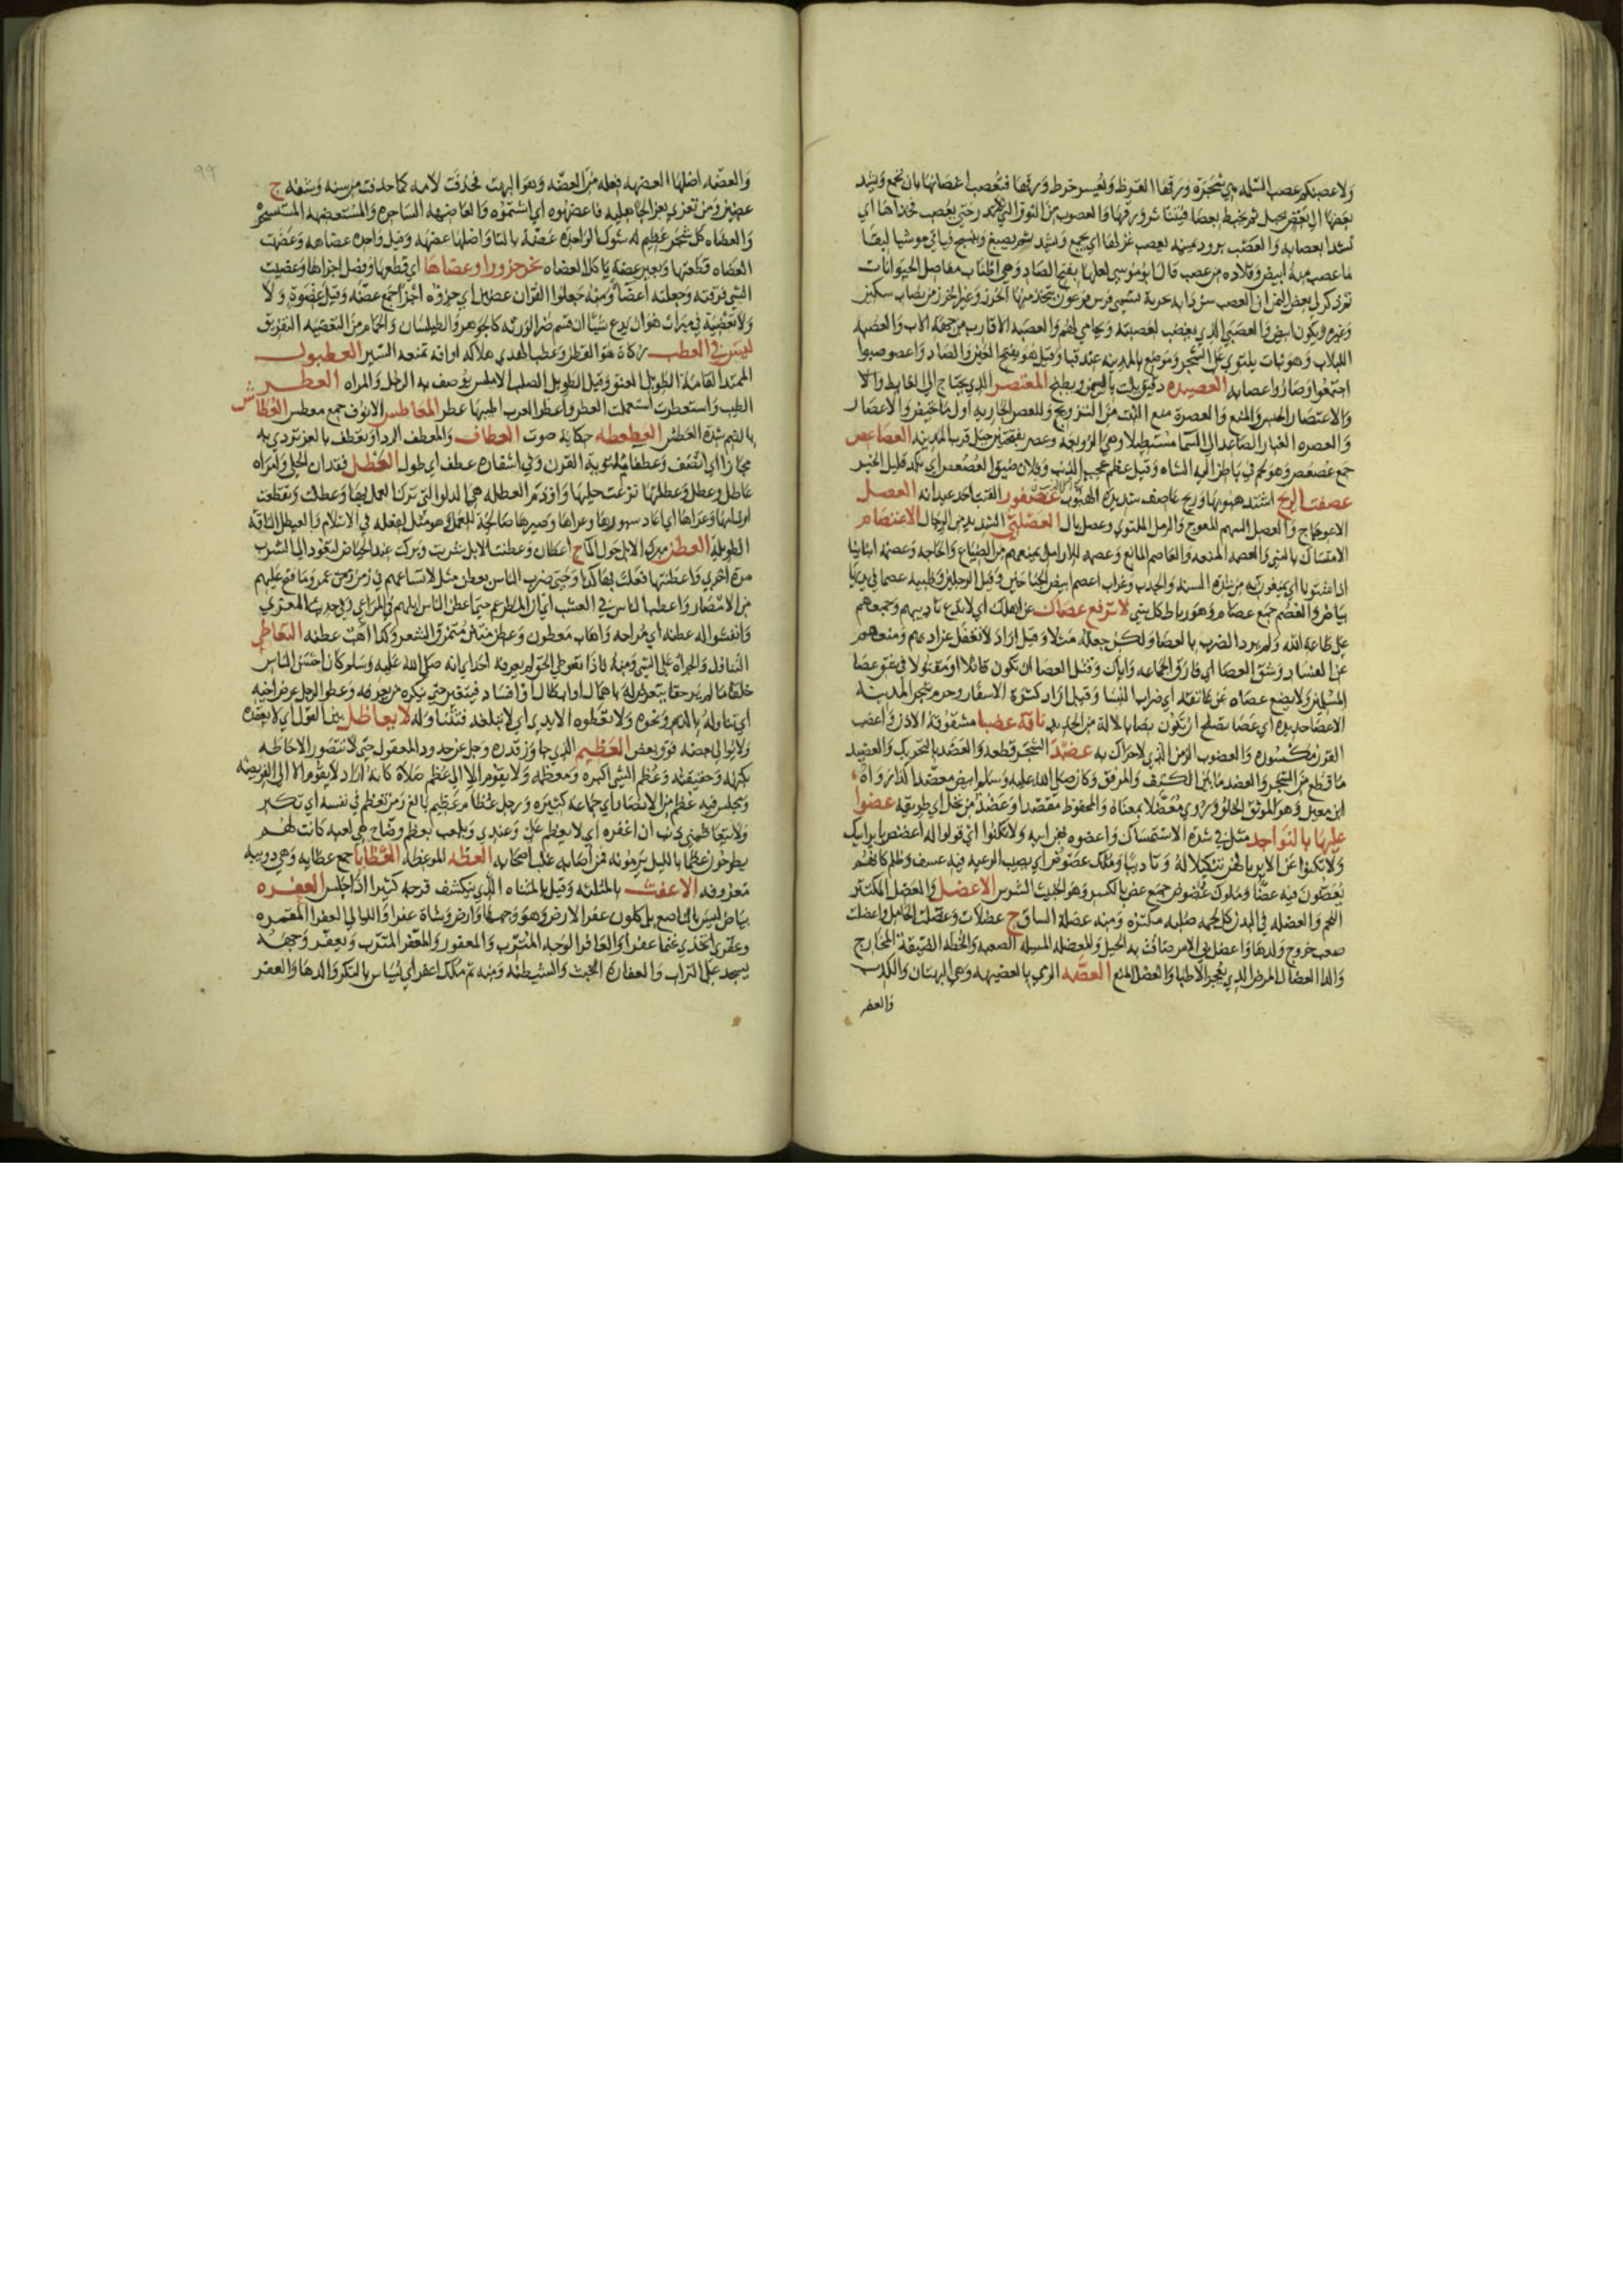 ولاعصبنكم عصب السلمه هي شجرة ورقها القرظ ويعسر خرط ورقها فتعصب اغصانها بان تجمع ويشد
بعضها الى بعض بحبل ثم يخبط بعصا فيتناثر ورقها والعصوب من النوق التي لا تدر حتى يعصب فخذاها اي
تشدا بعصابه والعصب برود يمنيه يعصب غزلها اي يجمع ويشد ثم يصبغ وينسج فياتي موشيا لبقا
ما عصب منه ابيض وقلاده من عصب قال ابو موسى لعلها بفتح الصاد وهي اطناب مفاصل الحيوانات
ثم ذكر لي بعض اليمن ان العصب سن دابه بحرية تسمى فرس فرعون يتخذ منها الخرز وغير الخرز من نصاب سكين
وغيره ويكون ابيض والعصبي الذي يغضب لعصبته ويحامي لهم والعصبه الاقارب من جهة الاب والعصبه
اللبلاب وهو نبات يلتوي على الشجر وموضع بالمدينه عند قبا وقيل هو بفتح العين والصاد واعصوصبوا
اجتمعوا وصاروا عصابه العصيده دقيق يلت بالسمن ويطبخ المعتصر الذي يحتاج الى الغايط والا
والاعتصار الحبس والمنع والعصرة منع البنت من التزويج وللعصر الجاريه اول ما تحيض والاعصار
والعصره الغبار الصاعد الى السما مستطيلا وهي الزوبعه وعصر بفتحتين جبل قرب المدينه العصاعص
جمع عصعص وهو لحم في باطن الية الشاه وقيل عظم عجب الذنب وفلان ضيق العصعص اي نكد قليل الخير
عصفت الريح اشتد هبوبها وريح عاصف شديدة الهبوب عصفور القتب احد عيدانه العصل
الاعوجاج والعصل السهم المعوج والرمل الملتوي وعصل بال العصلبي الشديد من الرجال الاعتصام
الامتساك بالشي والعصمه المنعه والعاصم المانع وعصمه للارامل يمنعهم من الضياع والحاجه وعصمه ابنائنا
اذا شتونا اي يمتنعون به من شدة السنه والجدب وغراب اعصم ابيض الجناحين وقيل الرجلين وظبيه عصما في يديها
بياض والعصم جمع عصام وهو رباط كل شي لا ترفع عصاك عن اهلك اي لا تدع تاديبهم وجمعهم
على طاعة الله ولم يرد الضرب بالعصا ولكن جعله مثلا وقيل اراد لا تغفل عن ادبهم ومنعهم
عن الفساد وشق العصا اي فارق الجماعه واياك وقتيل العصا ان تكون قاتلا او مقتولا في شق عصا
المسلمين ولا يضع عصاه عن عاتقه اي ضراب النسا وقيل اراد كثرة الاسفار وحرم شجر المدينه
الا عصا حديده اي عصا تصلح ان تكون نصابا لالة من الحديد ناقة عضبا مشقوقة الاذن واعضب
القرن مكسوره والمعضوب الزمن الذي لا حراك به عضد الشجر قطعه والعضد بالتحريك والعضيد
ما قطع من الشجر والعضد ما بين الكتف والمرفق وكان صلى الله عليه وسلم ابيض معضدا كذا رواه
ابن معين وهو الموثق الخلق وروي معضلا بمعناه والمحفوظ مقصدا وعضد من نخل اي طريقه عضوا
عليها بالنواجد مثل في شدة الاستمساك واعضوه بهن ابيه ولا تكنوا اي قولوا له اعضض باير ابيك
ولا تكنوا عن الاير بالهن تنكيلا له وتاديبا وملك عضوض اي يصيب الرعيه فيه عسف وظلم كانهم
يعضون فيه عضا وملوك عضوض جمع عض بالكسر وهو الخبيث الشرس الاعضل والعضل المكتنز
اللحم والعضله في البدن كل لحمه صلبه مكتنزه ومنه عضلة الساق ج عضلات وعضلت الحامل واعضلت
صعب خروج ولدها واعضل بي الامر ضاقت به الحيل والمعضله المسله الصعبه والخطه الضيقة المخارج
والدا العضال المرض الذي يعجز الاطبا والعضل المنع العضه الرمي بالعضيهه وهي البهتان والكذب
والعضه
والعضه اصلها العضهه فعله من العضه وهو البهت فحذفت لامه كما حذفت من سنه وشفه ج
عضين ومن تعزى بعزا الجاهليه فاعضهوه اي اشتموه والعاضهه الساحره والمستعضهه المتسحره
والعضاه كل شجر عظيم له شوك الواحده عضة بالتا واصلها عضهه وقيل واحده عضاهه وعضهت
العضاه قطعتها وبعير عضه ياكل العضاه نحر جزورا وعضاها اي قطعها وفصل اجزاها وعضيت
الشي فرقته وجعلته اعضا ومنه جعلوا القران عضين اي جزؤه اجزا جمع عضه وقيل عضوة ولا
ولا تعضية في ميراث هو ان يدع شيئا ان قسم ضر الورثه كالجوهر والطيلسان والحمام من التعضيه التفريق
ليس في العطب زكاة هو القطن وعطب الهدي هلاكه او افه تمنعه السير العطبول
الممتد القامة الطويل العنق وقيل الطويل الصلب الاملس يوصف به الرجل والمراه العطر
الطيب واستعطرت استعملت العطر واعطر العرب اطيبها عطر المعاطس الانوف جمع معطس العطاش
بالضم شدة العطش العطعطه حكاية صوت العطاف والمعطف الردا وتعطف بالعز تردى به
مجازا اي اتصف وعطفا ملتوية القرن وفي اشفاره عطف اي طول العطل فقدان الحلي وامراه
عاطل وعطل وعطلتها نزعت حليها واوذم العطله هي الدلو التي ترك العمل بها وعطلت وتقطعت
اوذامها وعراها اي اعاد سيورها وعراها وصيرها صالحة للعمل وهو مثل لفعله في الاسلام والعيطل الناقة
الطويله العطن مبرك الابل حول الما ج اعطان وعطنت الابل شربت وبركت عند الحياض لتعود الى الشرب
مرة اخرى واعطنتها فعلت بها كذا وحتى ضرب الناس بعطن مثل لاتساعهم في زمن عمر وما فتح عليهم
من الامصار واعطن الناس في العشب اي ان المطر عم حتى اعطن الناس ابلهم في المراعي وفي حديث المعزي
وانفشوا له عطنه اي مراحه واهاب معطون وعطن منتن متمزق الشعر وكذا اهب عطنه التعاطي
التناول والجراه على الشي ومنه فاذا تعوطي الحق لم يعرفه احد اي انه صلى الله عليه وسلم كان احسن الناس
خلقا ما لم ير حقا يتعرض له باهمال او ابطال او افساد فيتغير حتى ينكره من يعرفه وعطو الرجل عرض اخيه
اي تناوله بالذم ونحوه ولا تعطوه الايدي اي لا تبلغه فتتناوله لا يعاظل بين القول اي لا يعقده
ولا يوالي بعضه فوق بعض العظيم الذي جاوز قدره وجل عن حدود العقول حتى لا تتصور الاحاطه
بكنهه وحقيقته وعظم الشي اكبره ومعظمه ولا يقوم الا الى عظم صلاة كانه اراد لا يقوم الا الى الفريضه
ومجلس فيه عظم من الانصار اي جماعه كبيره ورجل عظام عظيم بالغ ومن تعظم في نفسه اي تكبر
ولا يتعاظمني ذنب ان اغفره اي لا يعظم علي وعندي ويلعب بعظم وضاح هي لعبه كانت لهم
يطرحون عظما بالليل يرمونه فمن اصابه غلب اصحابه العظه الموعظه العظايا جمع عظايه وهي دويبه
معروفه الاعفث بالمثلثه وقيل بالمثناه الذي ينكشف فرجه كثيرا اذا جلس العفره
بياض ليس بالناصع بل كلون عفر الارض وهو وجهها وارض وشاة عفرا والليالي العفر المقمره
وعفري اتخذي غنما عفرا والعافر الوجه المترب والمعفور والمعفر المترب ويعفر وجهه
يسجد على التراب والعفارة الخبث والشيطنه ومنه ثم ملك اعفر اي يساس بالنكر والدها والعفر